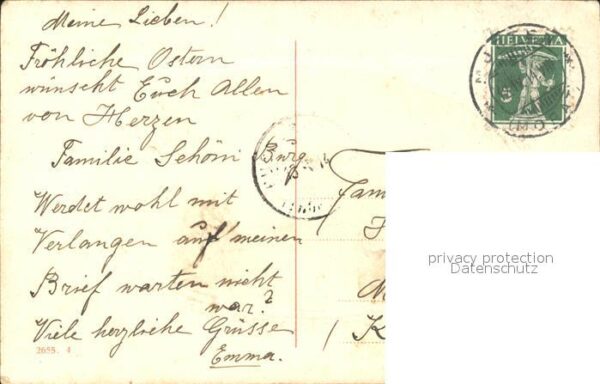 Meine Lieben!
Fröhliche Ostern
wünscht Euch Allen
von Herzen
Familie Schöni Burg
Werdet wohl mit
Verlangen auf meinen
Brief warten nicht
war?
Viele herzliche Grüsse
Emma.
2655. 4
HELVETIA
5
Fam
privacy protection
Datenschutz